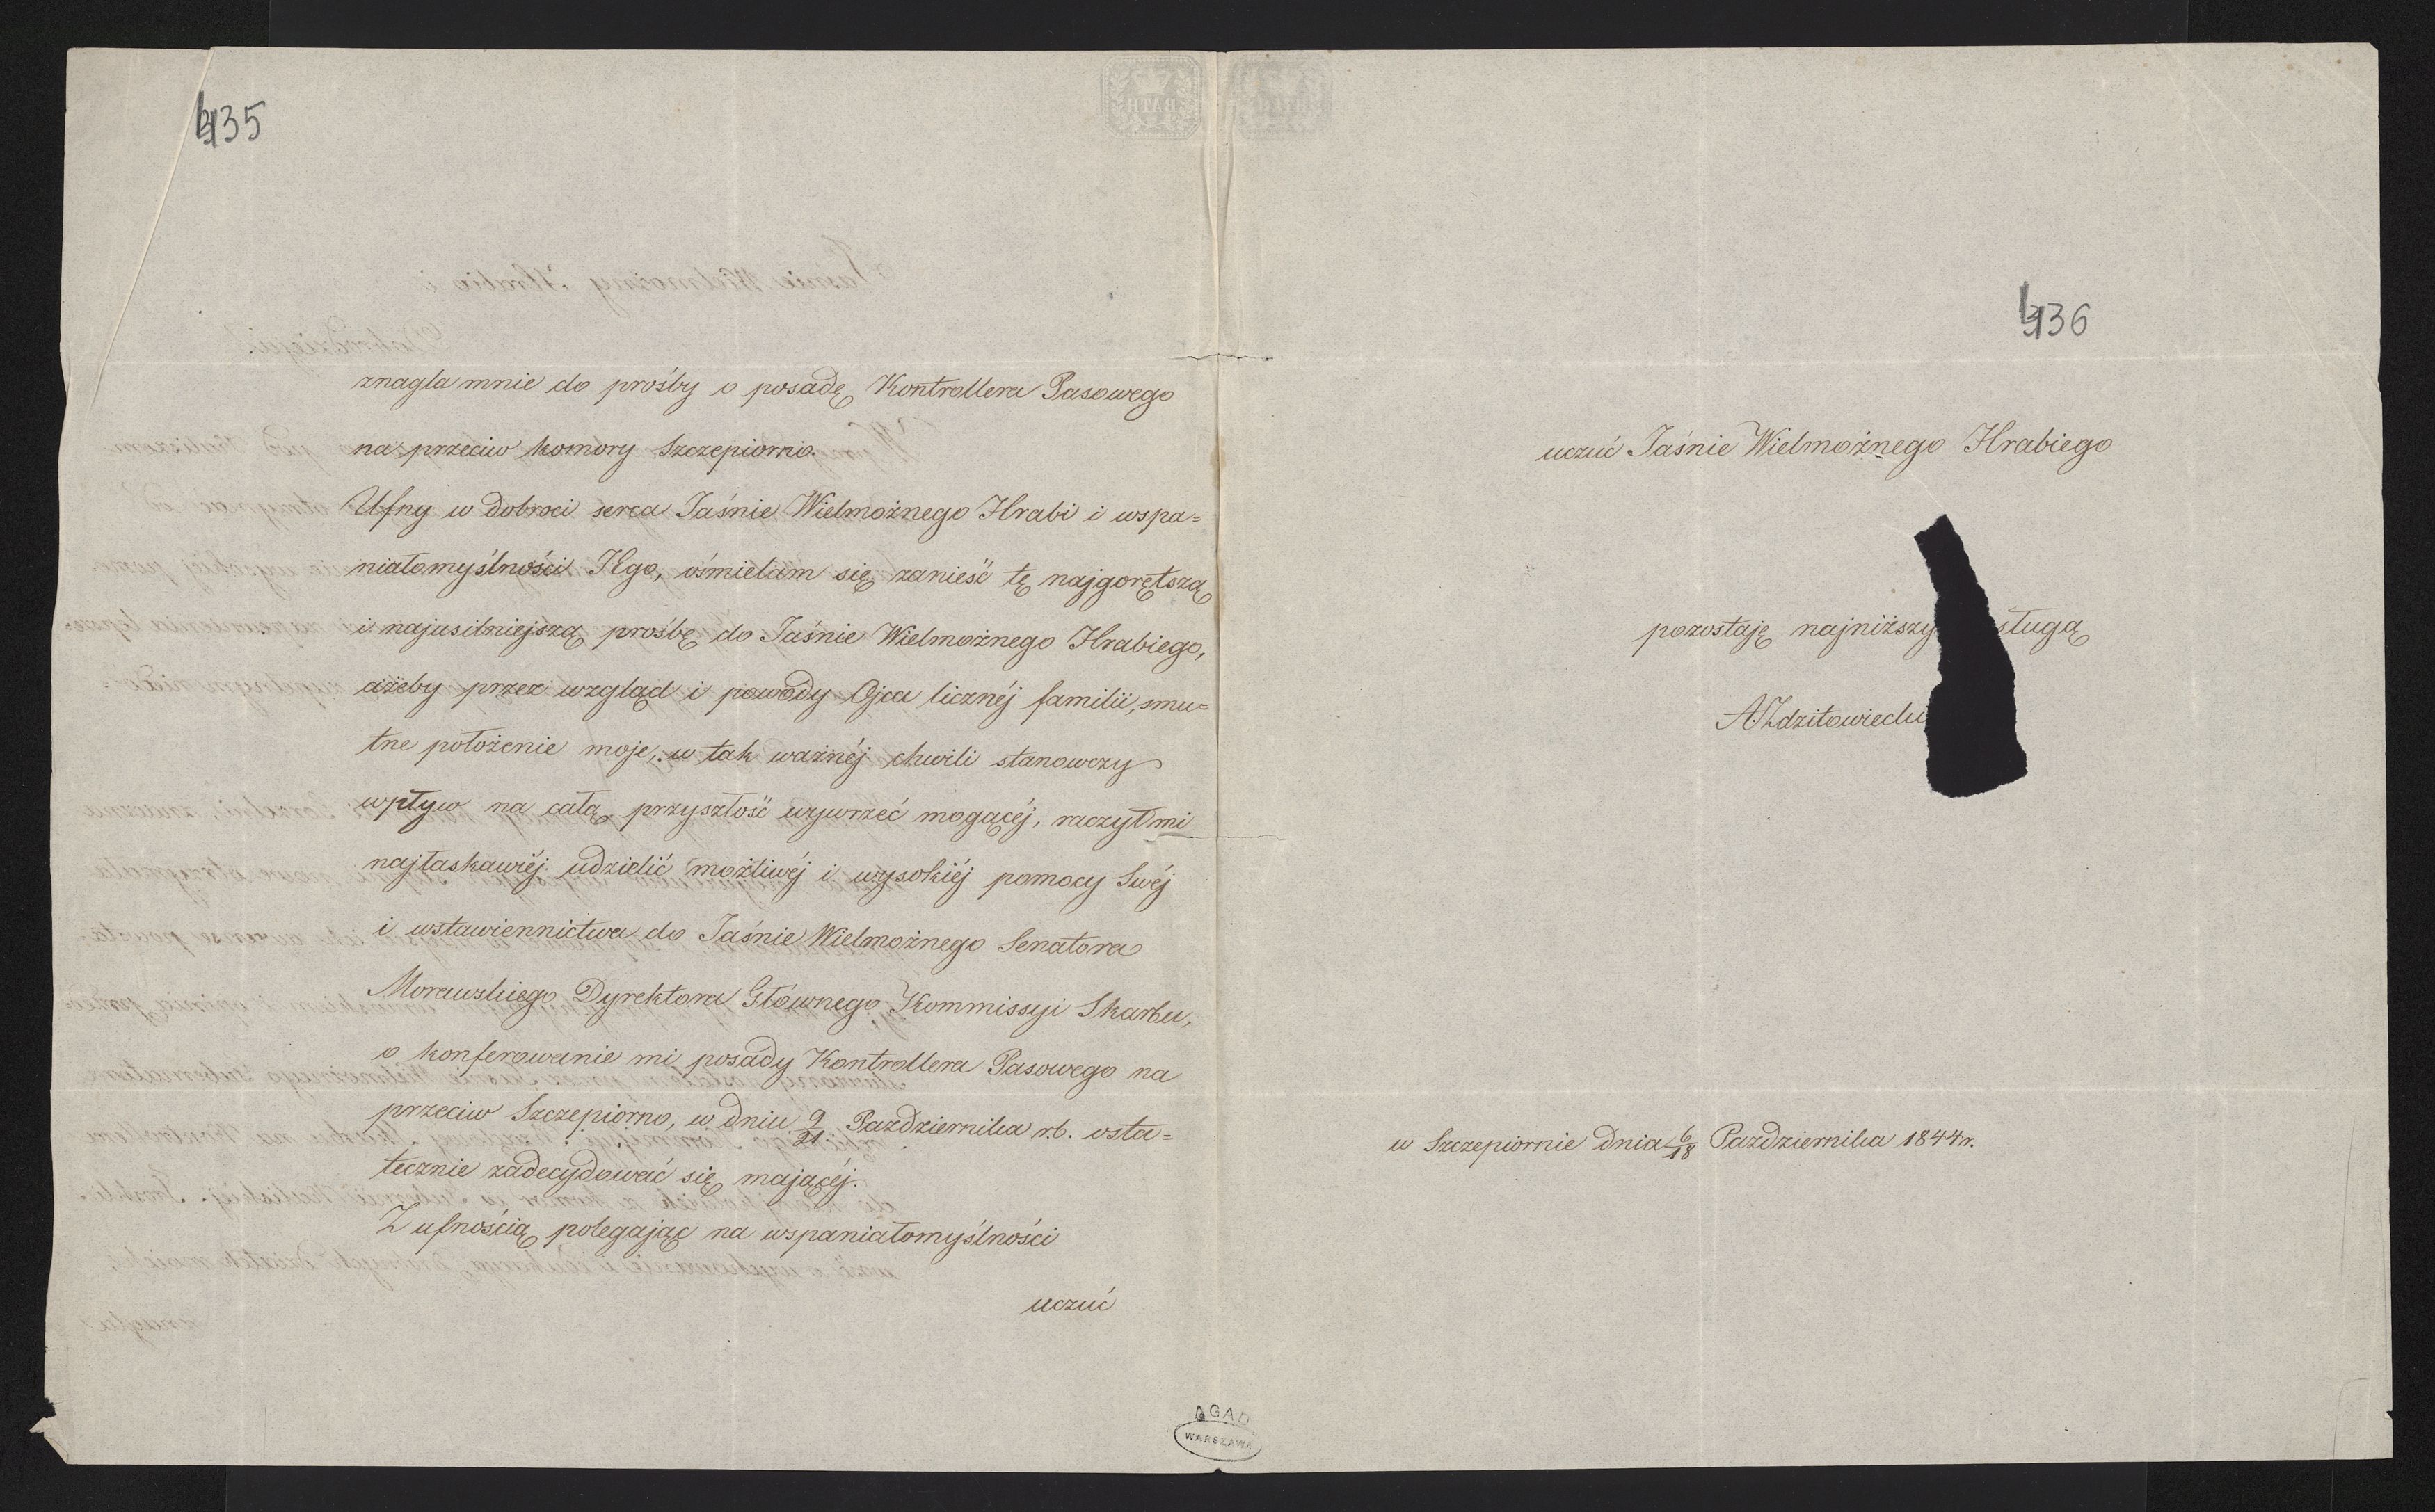 435
znagla mnie do prośby o posadę Kontrollera Pasowego
na przeciw komory Szczepiorno.
Ufny w dobroci serca Jaśnie Wielmożnego Hrabi i wspa=
niałomyślności JEgo, ośmielam się zanieść tę najgorętszą
i najusilniejszą prośbę do Jaśnie Wielmożnego Hrabiego,
ażeby przez wzgląd i powody Ojca licznéj familii, smu=
tne położenie moje, w tak ważnéj chwili stanowczy
wpływ na całą przyszłość wywrzeć mogącéj, raczył mi
najłaskawiéj udzielić możliwéj i wysokiéj pomocy Swéj
i wstawiennictwa do Jaśnie Wielmożnego Senatora
Morawskiego Dyrektora Głównego Kommissyi Skarbu,
o konferowanie mi posady Kontrollera Pasowego na
przeciw Szczepiorno, w dniu 9/21 Pazdziernika r.b. osta=
tecznie zadecydować się mającéj.
Z ufnością polegając na wspaniałomyślności
uczuć
436
uczuć Jaśnie Wielmożnego Hrabiego
pozostaję najniższy sługą
A. Zdzitowiecki
w Szczepiornie dnia 6/18 Pazdziernika 1844r.
AGAD
WARSZAWA